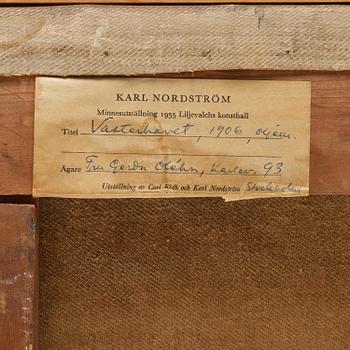 KARL NORDSTRÖM
Minnesutställning 1955 Liljevalchs konsthall
Titel Västerhavet, 1906, oljem.
Ägare Fru Gerda Oléhn, Karlav. 93
Utställning av Carl Kylberg och Karl Nordström Stockholm